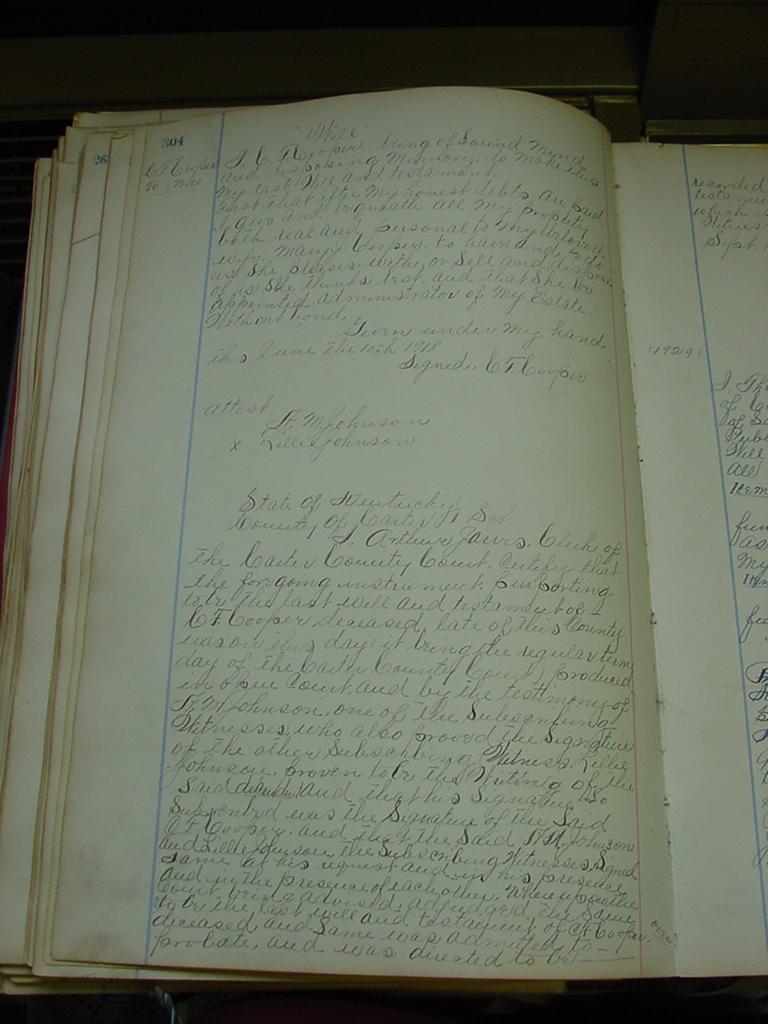 304
"Will"
C. F. Cooper
To } Will
I C. F. Cooper being of Sound Mind
and disposing Memory, do make this
My last Will and testament.
First that after My honest debts are paid
I give and bequeath all My property
both real and personal to My beloved
wife, Mary J. Cooper, to have and to do
as She pleases, with, or Sell and dispose
of as She thinks best, and that She be
appointed administrator of My Estate.
Without bond.
Given under My hand
this June the 10th 1918.
Signed, C F Cooper
attest
M Johnson
x Lillie Johnson
State of Kentucky
County of Carter Sct.
I, Arthur Jarvis, Clerk of
the Carter County Court, Certify that
the foregoing instrument, purporting
to be the last will and testament of
C F Cooper deceased, late of this County,
was on this day (it being the regular term
day of the Carter County Court), produced
in open Court, and by the testimony of
M Johnson, one of the Subscribing
Witnesses, who also proved the Signature
of the other Subscribing Witness Lillie
Johnson, proven to be the Writing of the
Said decedent and that his Signature So
Subscribed was the Signature of the Said
C F Cooper, and that the Said M Johnson
and Lillie Johnson the Subscribing Witnesses Signed
Same at his request and in his presence
and in the presence of each other, Whereupon the
Court being advised, adjudged the Same
to be the last will and testament of C F Cooper
deceased, and Same was admitted to
probate, and was directed to be
over
26
recorded
testamen
which
Witness
Sept.
(1929)
I, Th
of
of So
Publ
Will
all
Item
fun
as
My
Item